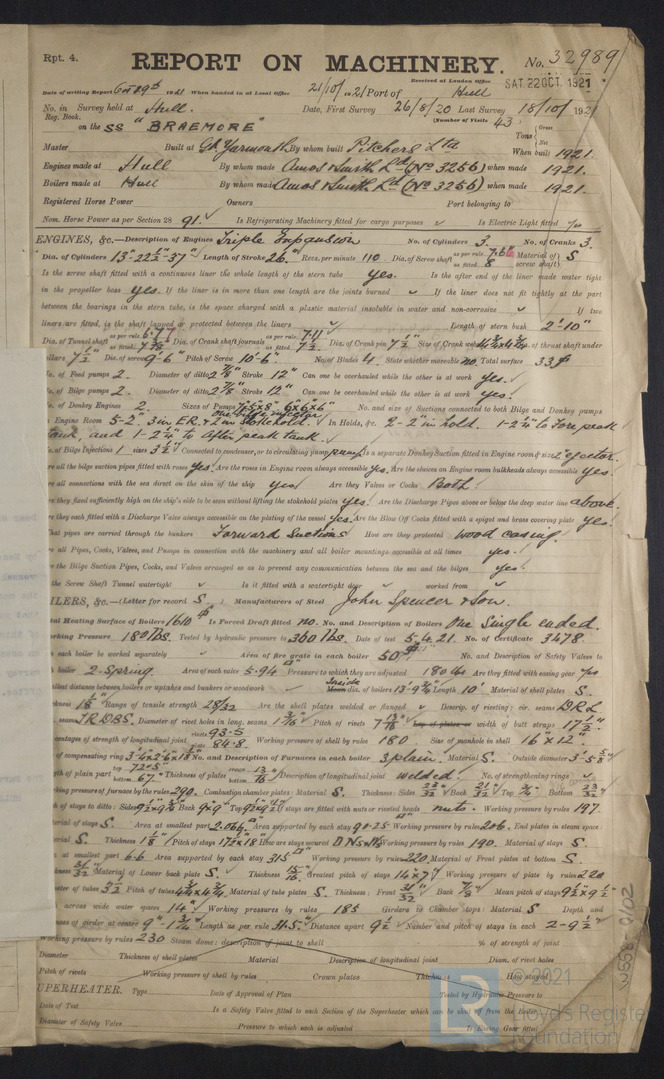 Rpt. 4.
REPORT ON MACHINERY. No. 32989
Received at London Office SAT. 22 OCT. 1921
Date of writing Report Oct 29th 1921 When handed in at Local Office 21/10/21 Port of Hull
No. in Survey held at Hull. Date, First Survey 26/8/20 Last Survey 18/10/1921
Reg. Book. (Number of Visits 43)
on the SS "BRAEMORE" Tons Gross Net
Master Built at Gt. Yarmouth By whom built Pitchers Ltd When built 1921.
Engines made at Hull By whom made Amos & Smith Ld (No 3256) when made 1921.
Boilers made at Hull By whom made Amos & Smith Ld (No 3256) when made 1921.
Registered Horse Power Owners Port belonging to
Nom. Horse Power as per Section 28 91. Is Refrigerating Machinery fitted for cargo purposes Is Electric Light fitted
ENGINES, &c.—Description of Engines Triple Expansion No. of Cylinders 3. No. of Cranks 3.
Dia. of Cylinders 13"-22½"-37" Length of Stroke 26" Revs. per minute 110 Dia. of Screw shaft as per rule 7.66 as fitted 8 Material of screw shaft S
Is the screw shaft fitted with a continuous liner the whole length of the stern tube yes. Is the after end of the liner made water tight
in the propeller boss yes. If the liner is in more than one length are the joints burned If the liner does not fit tightly at the part
between the bearings in the stern tube, is the space charged with a plastic material insoluble in water and non-corrosive If two
liners are fitted, is the shaft lapped or protected between the liners Length of stern bush 2'-10"
Dia. of Tunnel shaft as per rule as fitted Dia. of Crank shaft journals as per rule 7.11 as fitted 7½ Dia. of Crank pin 7½ Size of Crank webs of thrust shaft under
collars 7½" Dia. of screw 9'-6" Pitch of Screw 10'-6" No. of Blades 4 State whether moveable no. Total surface 33
No. of Feed pumps 2. Diameter of ditto 2⅞" Stroke 12" Can one be overhauled while the other is at work yes.
No. of Bilge pumps 2. Diameter of ditto 2⅞" Stroke 12" Can one be overhauled while the other is at work yes.
No. of Donkey Engines 2. Sizes of Pumps No. and size of Suctions connected to both Bilge and Donkey pumps
In Engine Room In Holds, &c. 2-2" in hold. 1-2¼" to Fore peak
tank, and 1-2¼" to After peak tank.
No. of Bilge Injections 1 sizes 3½" Connected to condenser, or to circulating pump pump Is a separate Donkey Suction fitted in Engine room & size 2" ejector.
are all the bilge suction pipes fitted with roses yes. Are the roses in Engine room always accessible yes. Are the sluices on Engine room bulkheads always accessible yes.
are all connections with the sea direct on the skin of the ship yes Are they Valves or Cocks Both.
are they fixed sufficiently high on the ship's side to be seen without lifting the stokehold plates yes. Are the Discharge Pipes above or below the deep water line above.
are they each fitted with a Discharge Valve always accessible on the plating of the vessel yes. Are the Blow Off Cocks fitted with a spigot and brass covering plate yes.
What pipes are carried through the bunkers Forward Suctions How are they protected wood casing.
are all Pipes, Cocks, Valves, and Pumps in connection with the machinery and all boiler mountings accessible at all times yes.
are the Bilge Suction Pipes, Cocks, and Valves arranged so as to prevent any communication between the sea and the bilges yes.
the Screw Shaft Tunnel watertight Is it fitted with a watertight door worked from
BOILERS, &c.—(Letter for record S.) Manufacturers of Steel John Spencer & Son.
Total Heating Surface of Boilers 1610 Is Forced Draft fitted no. No. and Description of Boilers One Single ended.
Working Pressure 180 lbs. Tested by hydraulic pressure to 360 lbs. Date of test 5.4.21. No. of Certificate 3478.
can each boiler be worked separately Area of fire grate in each boiler 50 No. and Description of Safety Valves to
each boiler 2-Spring. Area of each valve 5.94 Pressure to which they are adjusted 180 lbs Are they fitted with easing gear yes
smallest distance between boilers or uptakes and bunkers or woodwork Inside dia. of boilers 13'-9¾" Length 10' Material of shell plates S.
Thickness Range of tensile strength 28/32 Are the shell plates welded or flanged Descrip. of riveting: cir. seams D R L
long. seams T R D B S. Diameter of rivet holes in long. seams 1 3/16" Pitch of rivets width of butt straps 17½".
Percentages of strength of longitudinal joint rivets 93.5 plate 84.8. Working pressure of shell by rules 180. Size of manhole in shell 16" x 12".
Size of compensating ring No. and Description of Furnaces in each boiler 3 plain. Material S. Outside diameter
Length of plain part top 72.5" bottom 67." Thickness of plates crown bottom 13/16" Description of longitudinal joint welded. No. of strengthening rings
Working pressure of furnace by the rules 290. Combustion chamber plates: Material S. Thickness: Sides 23/32" Back 21/32" Top Bottom
Pitch of stays to ditto: Sides Back 9"x9" Top If stays are fitted with nuts or riveted heads nuts. Working pressure by rules 197.
Material of stays S. Area at smallest part 2.06 Area supported by each stay 90.25 Working pressure by rules 206. End plates in steam space:
Material S. Thickness 1⅛" Pitch of stays 17½"x18" How are stays secured D Nuts Working pressure by rules 190. Material of stays S.
Area at smallest part 6.6 Area supported by each stay 315 Working pressure by rules 220 Material of Front plates at bottom S.
Thickness 31/32" Material of Lower back plate S. Thickness 15/16" Greatest pitch of stays 14"x7½" Working pressure of plate by rules 220
Diameter of tubes 3½ Pitch of tubes 4¾"x4¾" Material of tube plates S. Thickness: Front 31/32" Back ⅞" Mean pitch of stays 9½"x9½"
Pitch across wide water spaces 14" Working pressures by rules 185 Girders to Chamber tops: Material S. Depth and
thickness of girder at centre 9"-1¾" Length as per rule 31.5" Distance apart 9½ Number and pitch of stays in each 2-9½"
Working pressure by rules 230 Steam dome: description of joint to shell % of strength of joint
Diameter Thickness of shell plates Material Description of longitudinal joint Diam. of rivet holes
Pitch of rivets Working pressure of shell by rules Crown plates Thickness How stayed
SUPERHEATER. Type Date of Approval of Plan Tested by Hydraulic Pressure to
Date of Test Is a Safety Valve fitted to each Section of the Superheater which can be shut off from the Boiler
Diameter of Safety Valve Pressure to which each is adjusted Is Easing Gear fitted
© 2021
Lloyd's Register
Foundation
LR